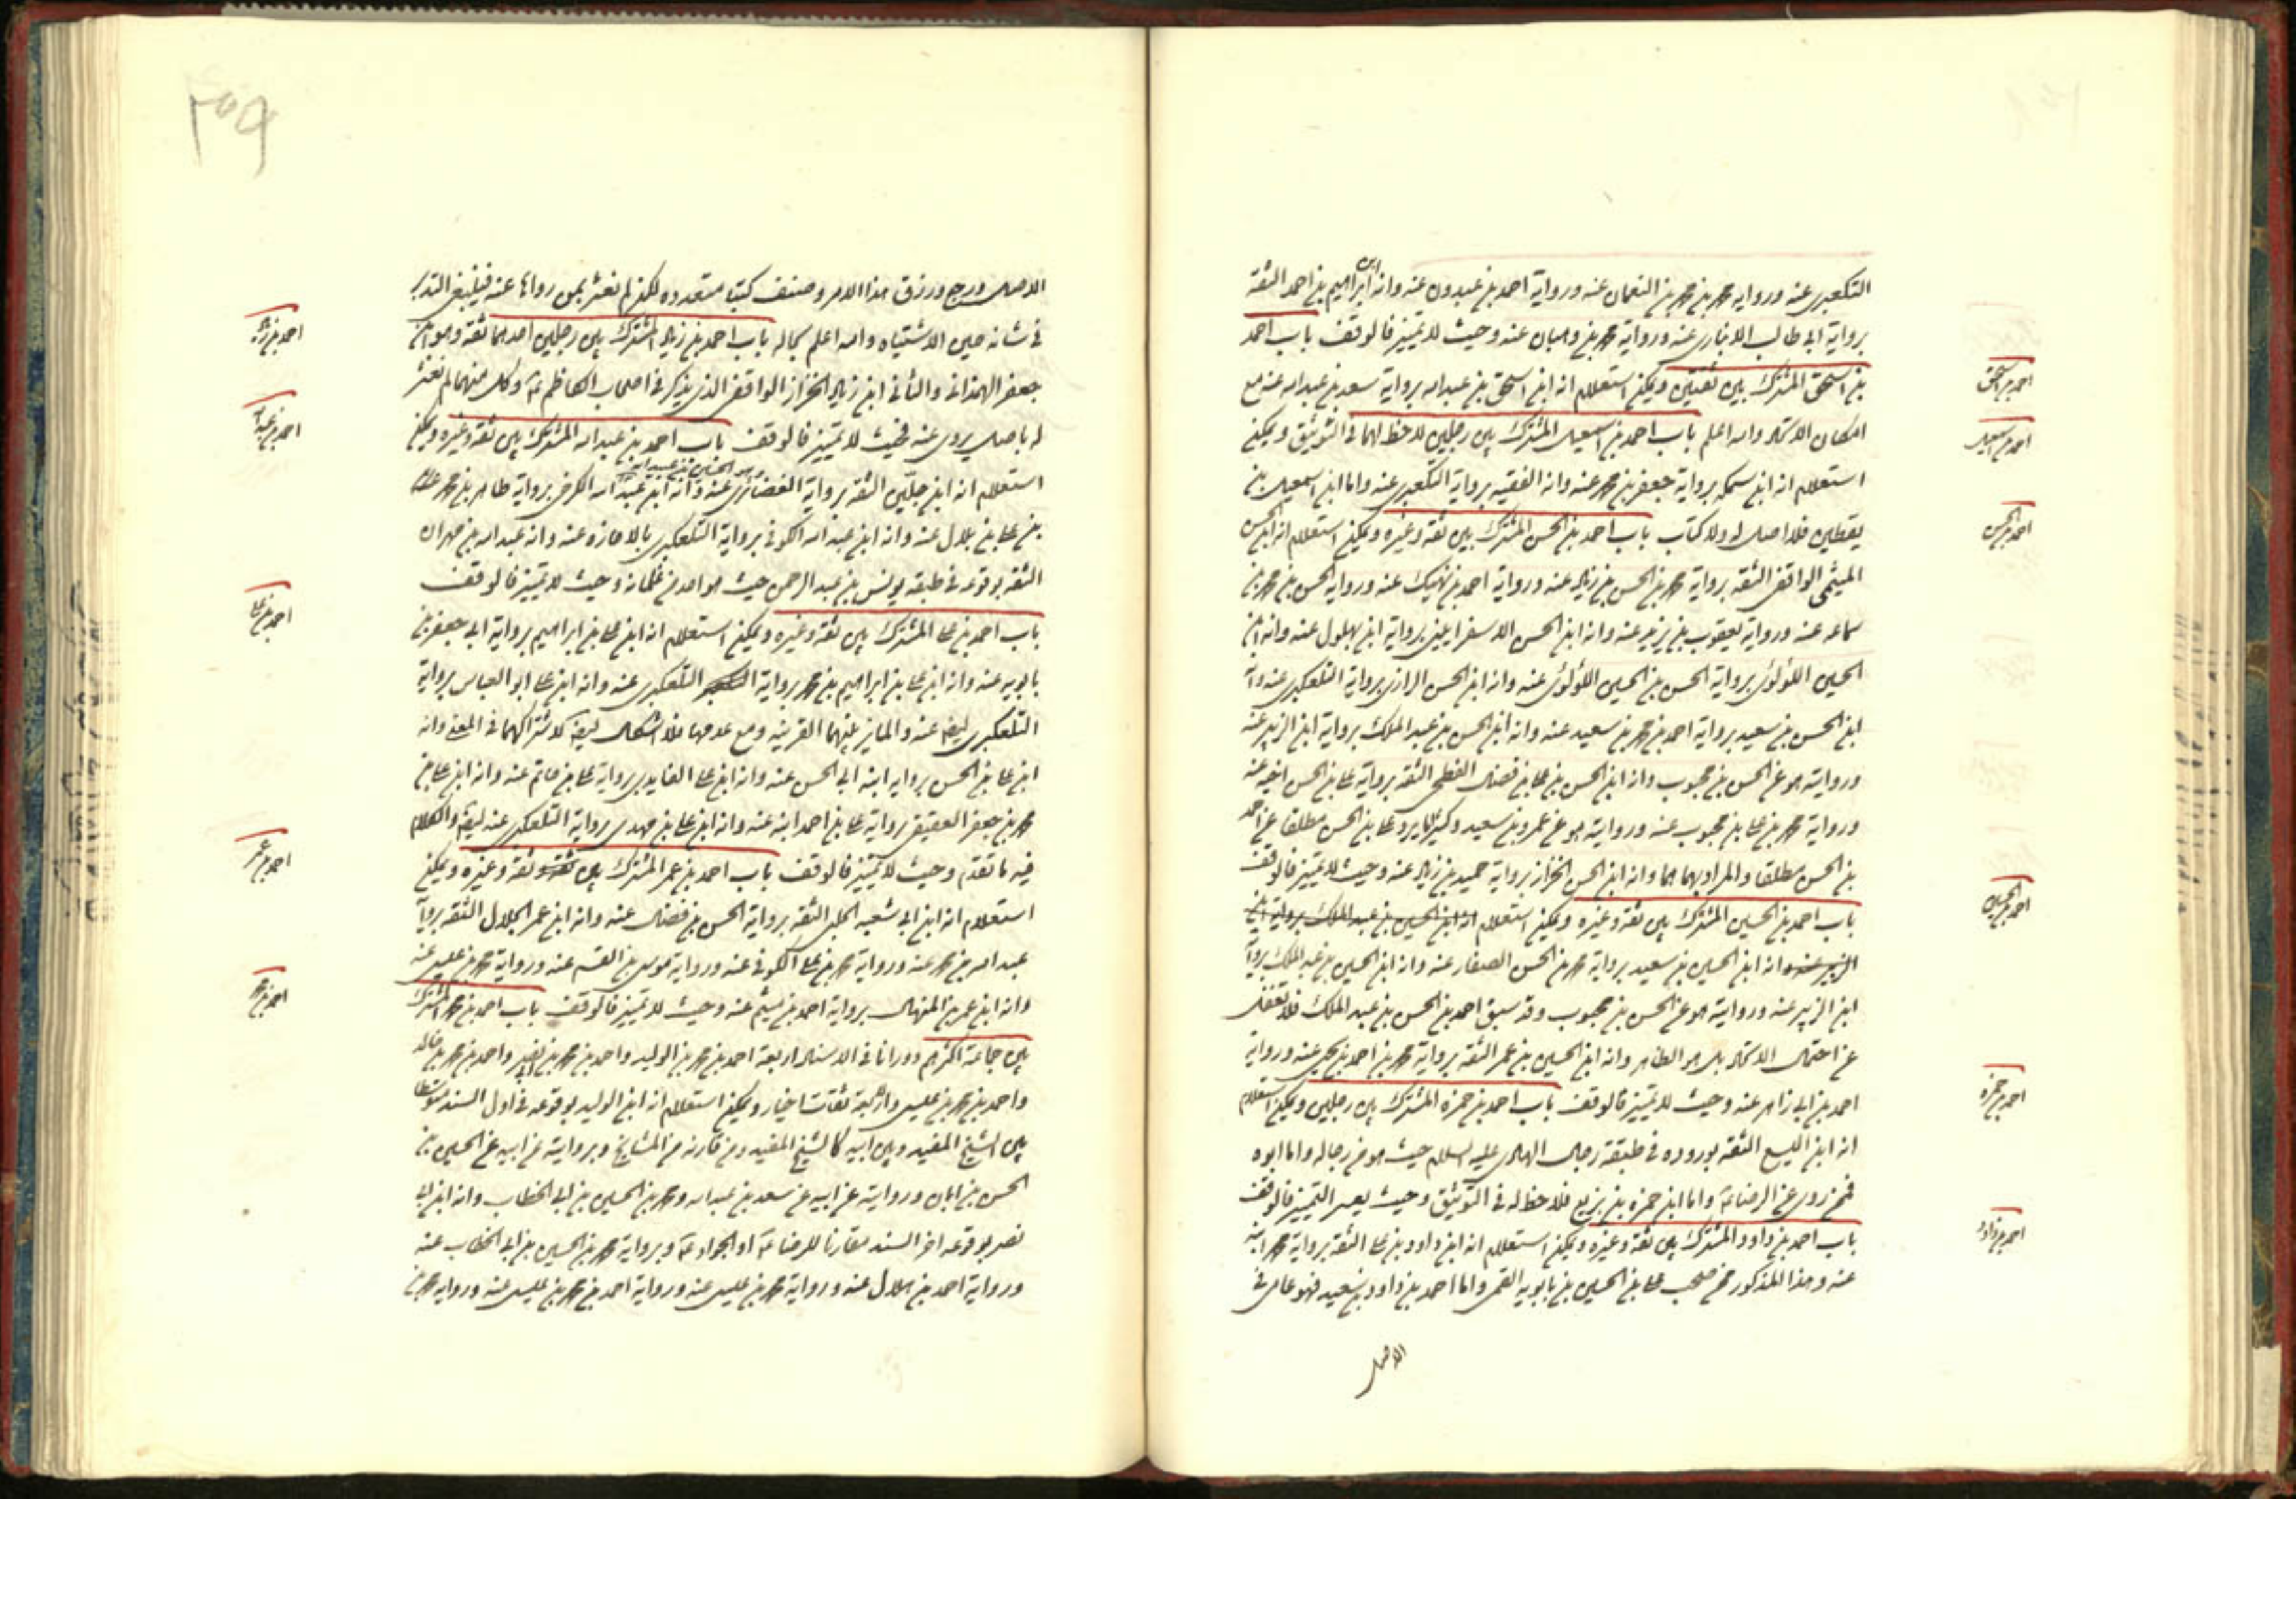 التلعكبري عنه ورواية محمد بن محمد بن النعمان عنه ورواية احمد بن عبدون عنه وانه ابن ابراهيم بن احمد الثقة
برواية ابي طالب الانباري عنه ورواية محمد بن وهبان عنه وحيث لا تميز فالوقف باب احمد
بن اسحق المشترك بين ثقتين ويمكن استعلام انه ابن اسحق بن عبد الله برواية سعد بن عبد الله عنه مع
امكان الاتحاد والله اعلم باب احمد بن اسمعيل المشترك بين رجلين لا حظ لهما في التوثيق ويمكن
استعلام انه ابن سمكه برواية جعفر بن محمد عنه وانه الفقيه برواية التلعكبري عنه واما ابن اسمعيل بن
يقطين فلا اصل له ولا كتاب باب احمد بن الحسن المشترك بين ثقة وغيره ويمكن استعلام انه ابن الحسن
الميثمي الواقفي الثقة برواية محمد بن الحسن بن زياد عنه ورواية احمد بن نهيك عنه ورواية الحسن بن محمد بن
سماعه عنه ورواية يعقوب بن يزيد عنه وانه ابن الحسن الاسفرايني برواية ابن بهلول عنه وانه ابن
الحسين اللؤلؤي برواية الحسن بن الحسين اللؤلؤي عنه وانه ابن الحسن الرازي برواية التلعكبري عنه وانه
ابن الحسن بن سعيد برواية احمد بن محمد بن سعيد عنه وانه ابن الحسن بن عبد الملك برواية ابن الزبير عنه
وروايته هو عن الحسن بن محبوب وانه ابن الحسن بن علي بن فضال الفطحي الثقة برواية علي بن الحسن اخيه عنه
ورواية محمد بن علي بن محبوب عنه وروايته هو عن عمرو بن سعيد وكثيرا ما يرد علي بن الحسن مطلقا عن احمد
بن الحسن مطلقا والمراد بهما هما وانه ابن الحسن الخزاز برواية حميد بن زياد عنه وحيث لا تميز فالوقف
باب احمد بن الحسين المشترك بين ثقة وغيره ويمكن استعلام انه ابن الحسين بن عبد الملك برواية ابن
الزبير عنه وانه ابن الحسين بن سعيد برواية محمد بن الحسن الصفار عنه وانه ابن الحسين بن عبد الملك برواية
ابن الزبير عنه وروايته هو عن الحسن بن محبوب وقد سبق احمد بن الحسن بن عبد الملك فلا تغفل
عن احتمال الاتحاد بل هو الظاهر وانه ابن الحسين بن عمر الثقة برواية محمد بن احمد بن يحيى عنه ورواية
احمد بن ابي زاهر عنه وحيث لا تميز فالوقف باب احمد بن حمزه المشترك بين رجلين ويمكن استعلام
انه ابن اليسع الثقة بوروده في طبقة رجال الهادي عليه السلام حيث هو من رجاله واما ابوه
فممن روى عن الرضا ع واما ابن حمزه بن بزيع فلا حظ له في التوثيق وحيث يعسر التميز فالوقف
باب احمد بن داود المشترك بين ثقة وغيره ويمكن استعلام انه ابن داود بن علي الثقة برواية محمد ابنه
عنه وهذا المذكور ممن صحب علي بن الحسين بن بابويه القمي واما احمد بن داود بن سعيد فهو عامي في
الاصل
احمد بن اسحق
احمد بن اسمعيل
احمد بن الحسن
احمد بن الحسين
احمد بن حمزه
احمد بن داود
الاصل ورجع ورزق هذا الامر وصنف كتبا متعدده لكن لم نعثر بمن رواها عنه فينبغي التدبر
في شانه حين الاشتباه والله اعلم بحاله باب احمد بن زياد المشترك بين رجلين احدهما ثقة وهو ابن
جعفر الهمداني والثاني ابن زياد الخزاز الواقفي الذي يذكر في اصحاب الكاظم ع وكل منهما لم نعثر
له باصل يروى عنه فحيث لا تميز فالوقف باب احمد بن عبد الله المشترك بين ثقة وغيره ويمكن
استعلام انه ابن جلين الثقة برواية الغضائري عنه وهو الحسين بن عبيد الله وانه ابن عبد الله الكرخي برواية طاهر بن محمد
بن علي بن بلال عنه وانه ابن عبد الله الكوفي برواية التلعكبري بالاجازه عنه وانه عبد الله بن مهران
الثقه بوقوعه في طبقه يونس بن عبد الرحمن حيث هو احد من غلمانه وحيث لا تميز فالوقف
باب احمد بن علي المشترك بين ثقة وغيره ويمكن استعلام انه ابن علي بن ابراهيم برواية ابي جعفر بن
بابويه عنه وانه ابن علي بن ابراهيم بن محمد برواية التلعكبري عنه وانه ابن علي ابو العباس برواية
التلعكبري ايضا عنه والمايز بينهما القرينه ومع عدمها فلا اشكال ايضا لاشتراكهما في المعنى وانه
ابن علي بن الحسن برواية ابنه ابي الحسن عنه وانه ابن علي الفايدي برواية علي بن حاتم عنه وانه ابن علي بن
محمد بن جعفر العقيقي برواية علي بن احمد ابنه عنه وانه ابن علي بن مهدي برواية التلعكبري عنه ايضا والكلام
فيه ما تقدم وحيث لا تميز فالوقف باب احمد بن عمر المشترك بين ثقة وغيره ويمكن
استعلام انه ابن ابي شعبه الحلبي الثقه برواية الحسن بن فضال عنه وانه ابن عمر الحلال الثقه برواية
عبد الله بن محمد عنه ورواية محمد بن علي الكوفي عنه ورواية موسى بن القسم عنه ورواية محمد بن عيسى عنه
وانه ابن عمر بن المنهال برواية احمد بن ميثم عنه وحيث لا تميز فالوقف باب احمد بن محمد المشترك
بين جماعة اكثرهم دورانا في الاسناد اربعة احمد بن محمد بن الوليد واحمد بن محمد بن ابي نصر واحمد بن محمد بن خالد
واحمد بن محمد بن عيسى والاربعة ثقات اخيار ويمكن استعلام انه ابن الوليد بوقوعه في اول السند متوسطا
بين الشيخ المفيد وبين ابيه كالشيخ المفيد ومن قارنه من المشايخ وبروايته عن ابيه عن الحسين بن
الحسن بن ابان وروايته عن ابيه عن سعد بن عبد الله ومحمد بن الحسين بن ابي الخطاب وانه ابن ابي
نصر بوقوعه اخر السند مقارنا للرضا ع او الجواد ع وبرواية محمد بن الحسين بن ابي الخطاب عنه
ورواية احمد بن هلال عنه ورواية محمد بن عيسى عنه ورواية احمد بن محمد بن عيسى عنه ورواية محمد بن
احمد بن زياد
احمد بن عبد الله
احمد بن علي
احمد بن عمر
احمد بن محمد